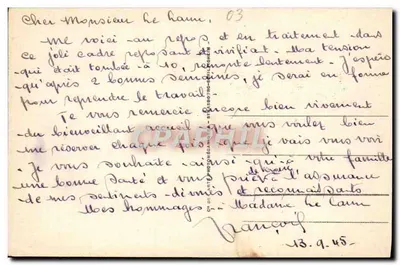 Cher Monsieur Le Cam, 03
Me voici au repos et en traitement dans
ce joli cadre reposant et vivifiant. Ma tension
qui était tombée à 10, remonte lentement. J'espère
qu'après 2 bonnes semaines, je serai en forme
pour reprendre le travail.
Je vous remercie encore bien vivement
du bienveillant accueil que vous voulez bien
me réserver chaque fois que je vais vous voir
Je vous souhaite ainsi qu'à votre famille
une bonne santé et vous prie de croire à l'assurance
de mes sentiments dévoués et reconnaissants
Mes hommages à Madame Le Cam
François
13.9.45
CPARAMA